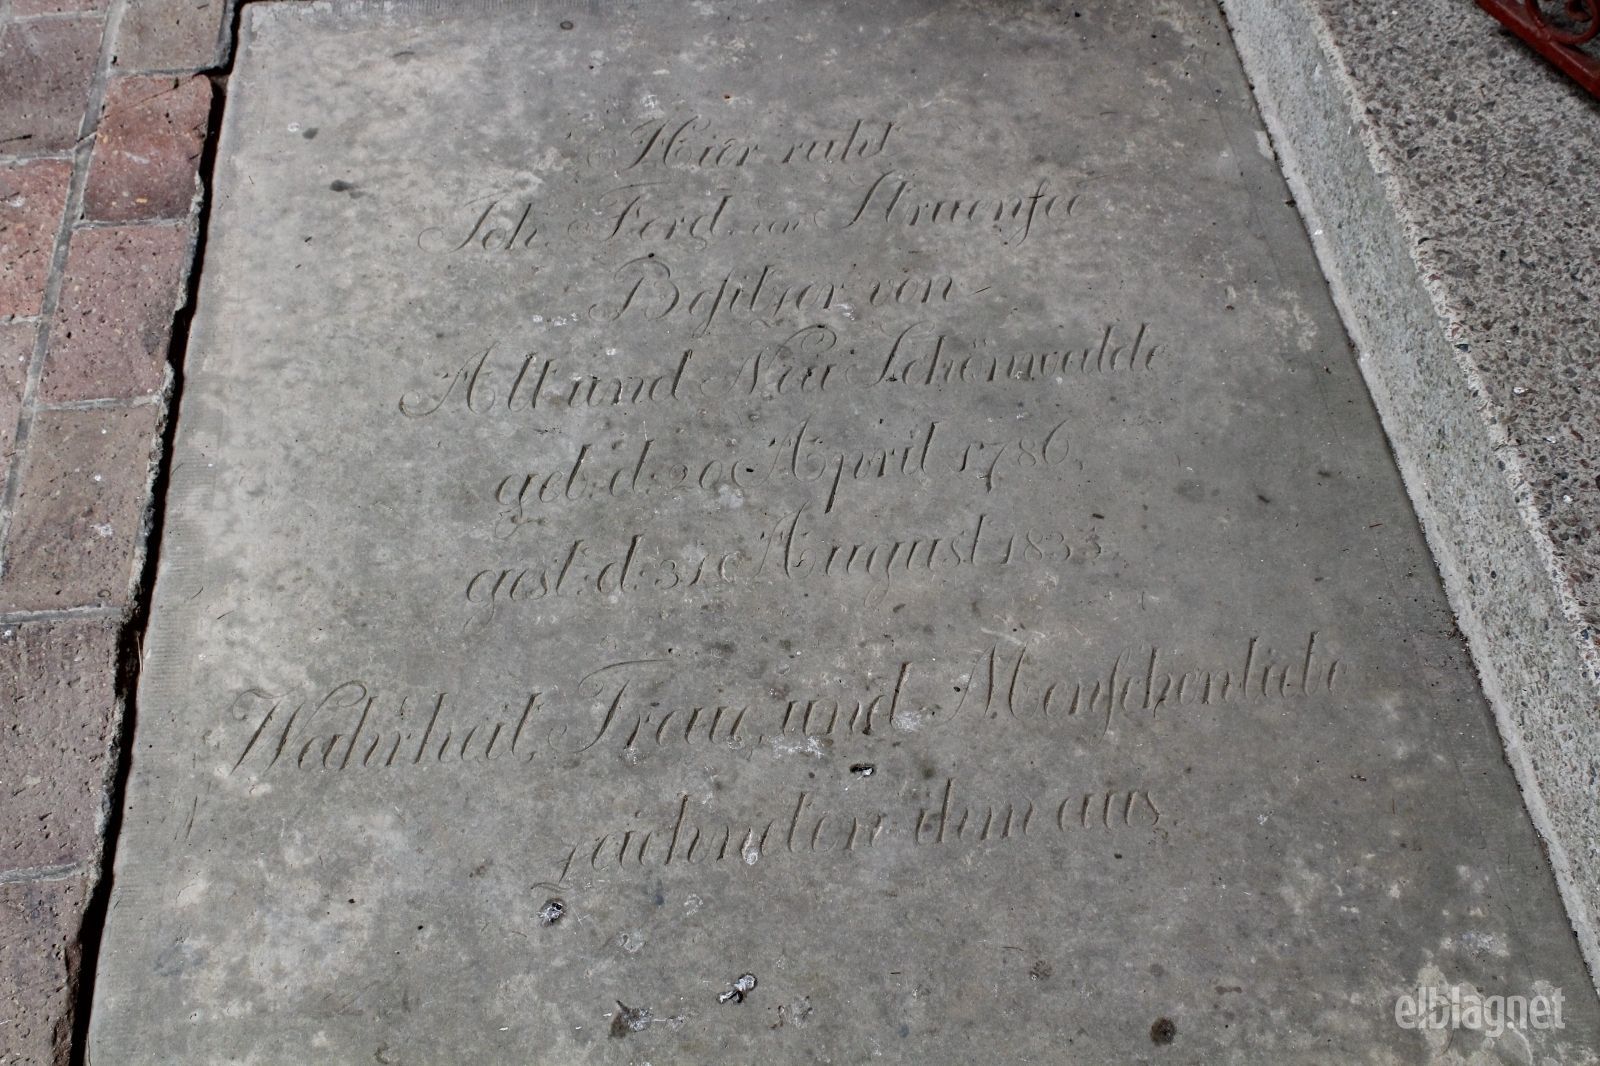 Hier ruht
Joh. Ferd. von Struensee
Besitzer von
Alt und Neu Schönwalde
geb: d: 20 April 1786,
gest: d: 31 August 1833.
Wahrheit, Treue, und Menschenliebe
zeichneten ihm aus.
elblagnet